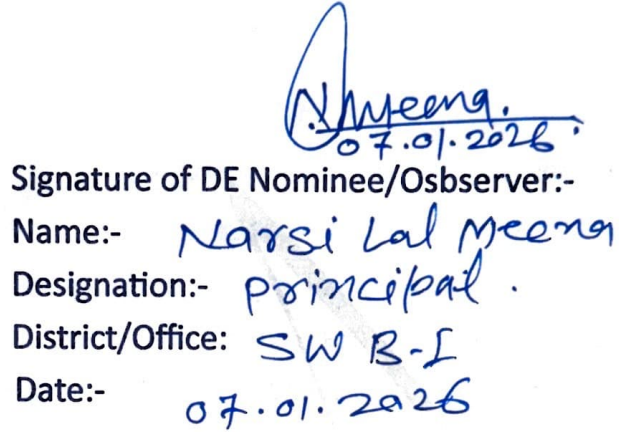 NMeena.
07.01.2026.
Signature of DE Nominee/Osbserver:-
Name:- Narsi Lal Meena
Designation:- Principal.
District/Office: SW B-I
Date:- 07.01.2026